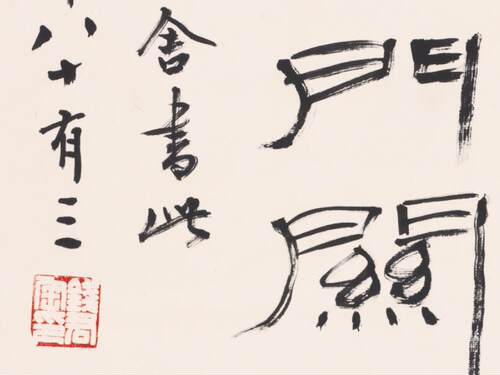 門關
舍書此
八十有三